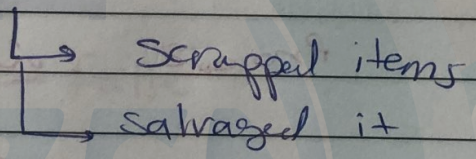 ↳ Scrapped items
↳ salvaged it